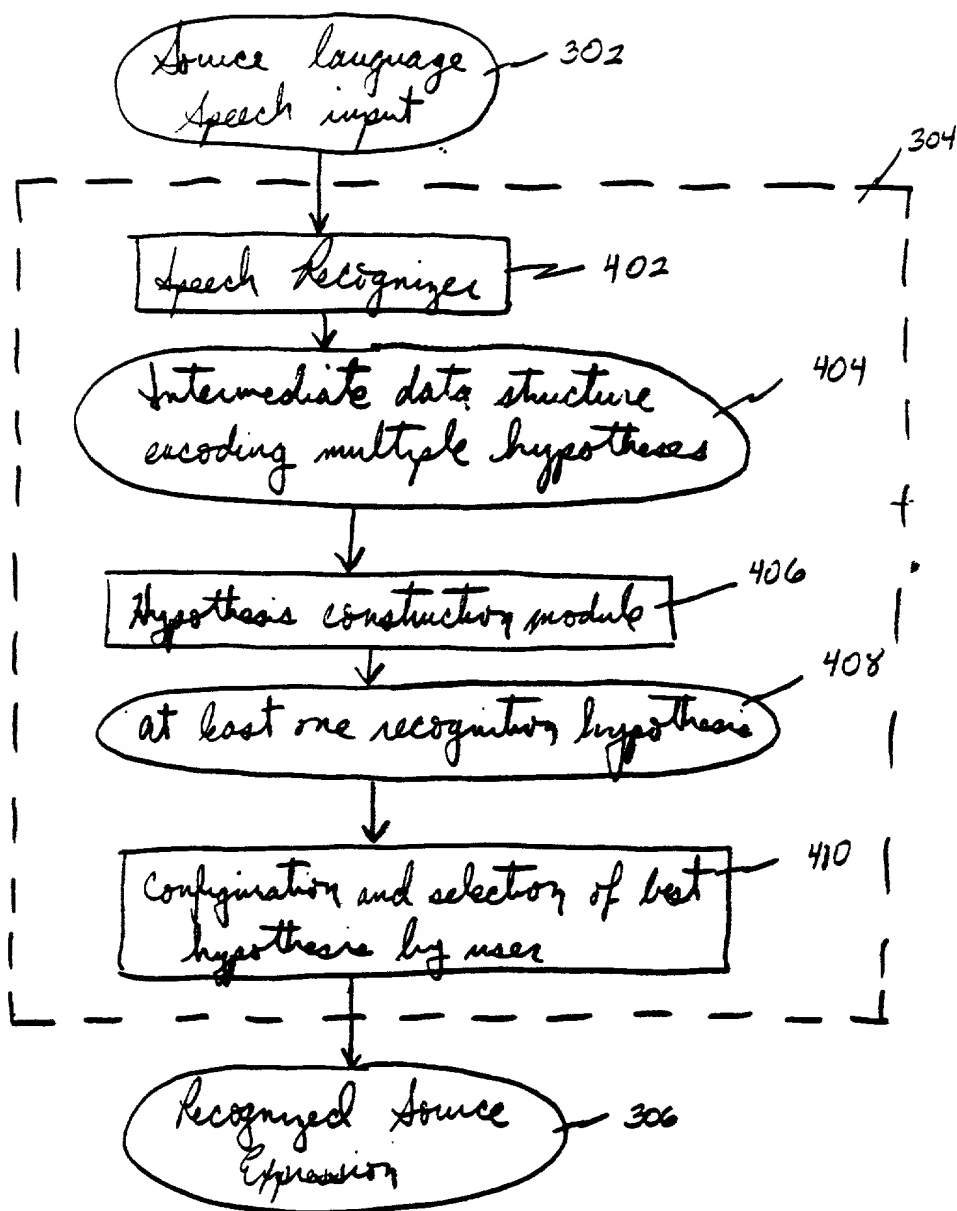 Source language
speech input
302
304
Speech Recognizer
402
Intermediate data structure
encoding multiple hypotheses
404
Hypothesis construction module
406
at least one recognition hypothesis
408
Configuration and selection of best
hypothesis by user
410
Recognized Source
Expression
306